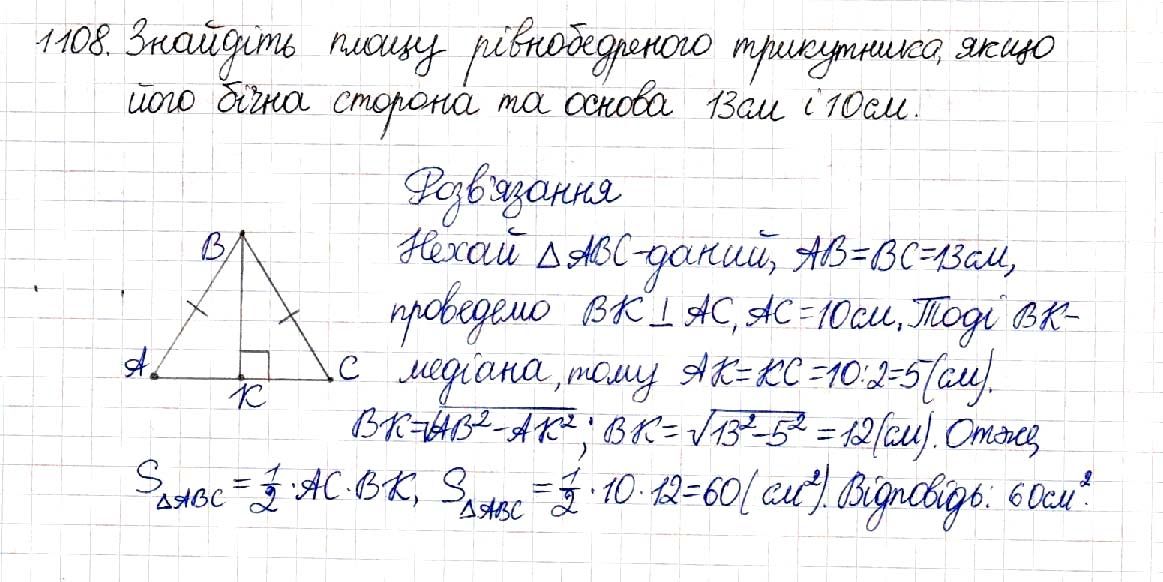 1108. Знайдіть площу рівнобедреного трикутника, якщо
його бічна сторона та основа 13см і 10см.
Розв'язання
Нехай △ABC-даний, AB=BC=13см,
проведемо BK⊥AC, AC=10см. Тоді BK-
медіана, тому AK=KC=10:2=5(см).
BK=√AB²-AK²; BK=√13²-5²=12(см). Отже,
S△ABC=1/2·AC·BK, S△ABC=1/2·10·12=60(см²). Відповідь: 60см².
B
A
K
C